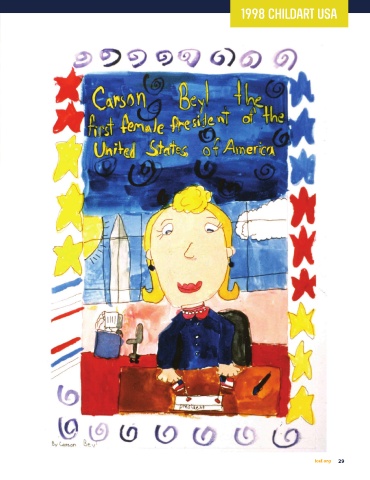 1998 CHILDART USA
Carson Beyl the
first female President of the
United States of America
president
By Carson Beyl
29